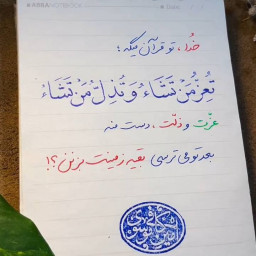 خدا، تو قرآن میگه:
تُعِزُّ مَنْ تَشَاءُ وَ تُذِلُّ مَنْ تَشَاءُ
عزت و ذلت، دست منه
بعد تو می ترسی بقیه زمینت بزنن؟!